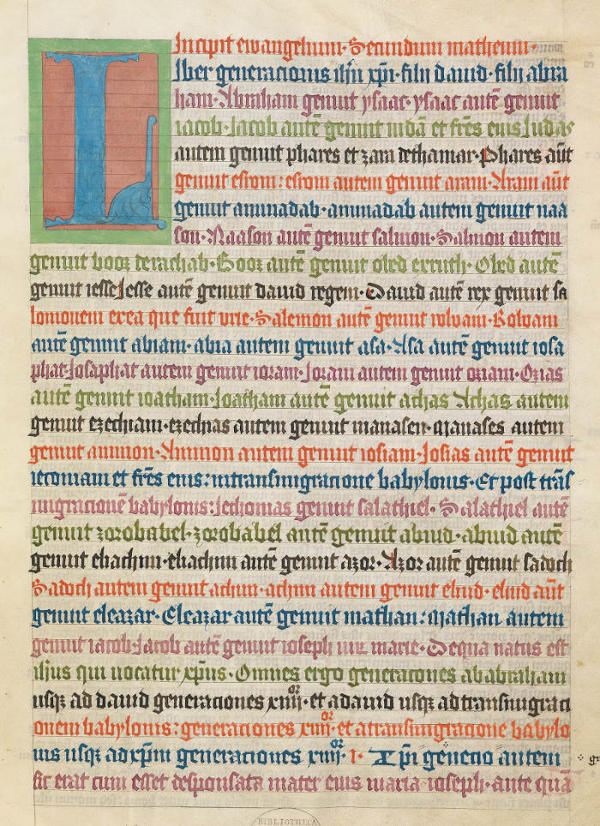 Incipit ewangelium · Secundum matheum ·
Liber generacionis ih̄u xp̄i · filii dauid · filii abra
ham · Abraham genuit ysaac · ysaac autē genuit
iacob · Jacob autē genuit iudā et fr̄es eius Judas
autem genuit phares et zara de thamar · Phares aūt
genuit esrom : esrom autem genuit aram · Aram aūt
genuit aminadab · aminadab autem genuit naa
son · Naason autē genuit salmon · Salmon autem
genuit booz de rachab · Booz autē genuit obed ex ruth · Obed autē
genuit iesse Jesse autē genuit dauid regem · Dauid autē rex genuit sa
lomonem ex ea que fuit vrie · Salemon autē genuit roboam · Roboam
autē genuit abiam · abia autem genuit asa · Asa autē genuit iosa
phat · Josaphat autem genuit ioram · Joram autem genuit oziam · Ozias
autē genuit ioatham · Joatham autē genuit achas Achas autem
genuit ezechiam · ezechias autem genuit manasen · Manases autem
genuit ammon · Ammon autem genuit iosiam · Josias autē genuit
ieconiam et fr̄es eius : in transmigracione babylonis · Et post trās
migracionē babylonis : Jechonias genuit salathiel · Salathiel autē
genuit zorobabel · zorobabel autē genuit abiud · abiud autē
genuit eliachim · eliachim autē genuit azor · Azor autē genuit sadoch
Sadoch autem genuit achim · achim autem genuit eliud · eliud aūt
genuit eleazar · Eleazar autē genuit mathan : Mathan autem
genuit iacob · Jacob autē genuit ioseph uir marie · De qua natus est
ih̄us qui uocatur xp̄us · Omnes ergo generacones ab abraham
usq̄ ad dauid generaciones xiiii or · et a dauid usq̄ ad transmigraci
onem babylonis : generaciones xiiii or · et a transmigracione babylo
nis usq̄ ad xp̄m generaciones xiiii or · Xp̄i genecio autem
sic erat cum esset desponsata mater eius maria ioseph · ante quā
BIBLIOTHECA